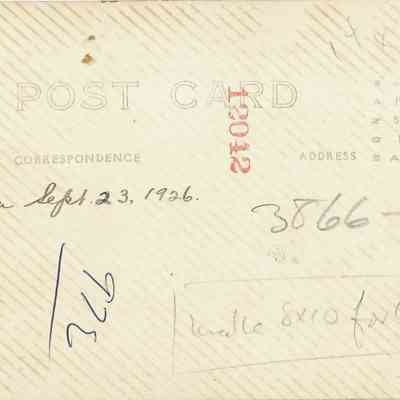 POST CARD
12042
CORRESPONDENCE
ADDRESS
Sept. 23, 1926.
3866-
926
make 8x10 for